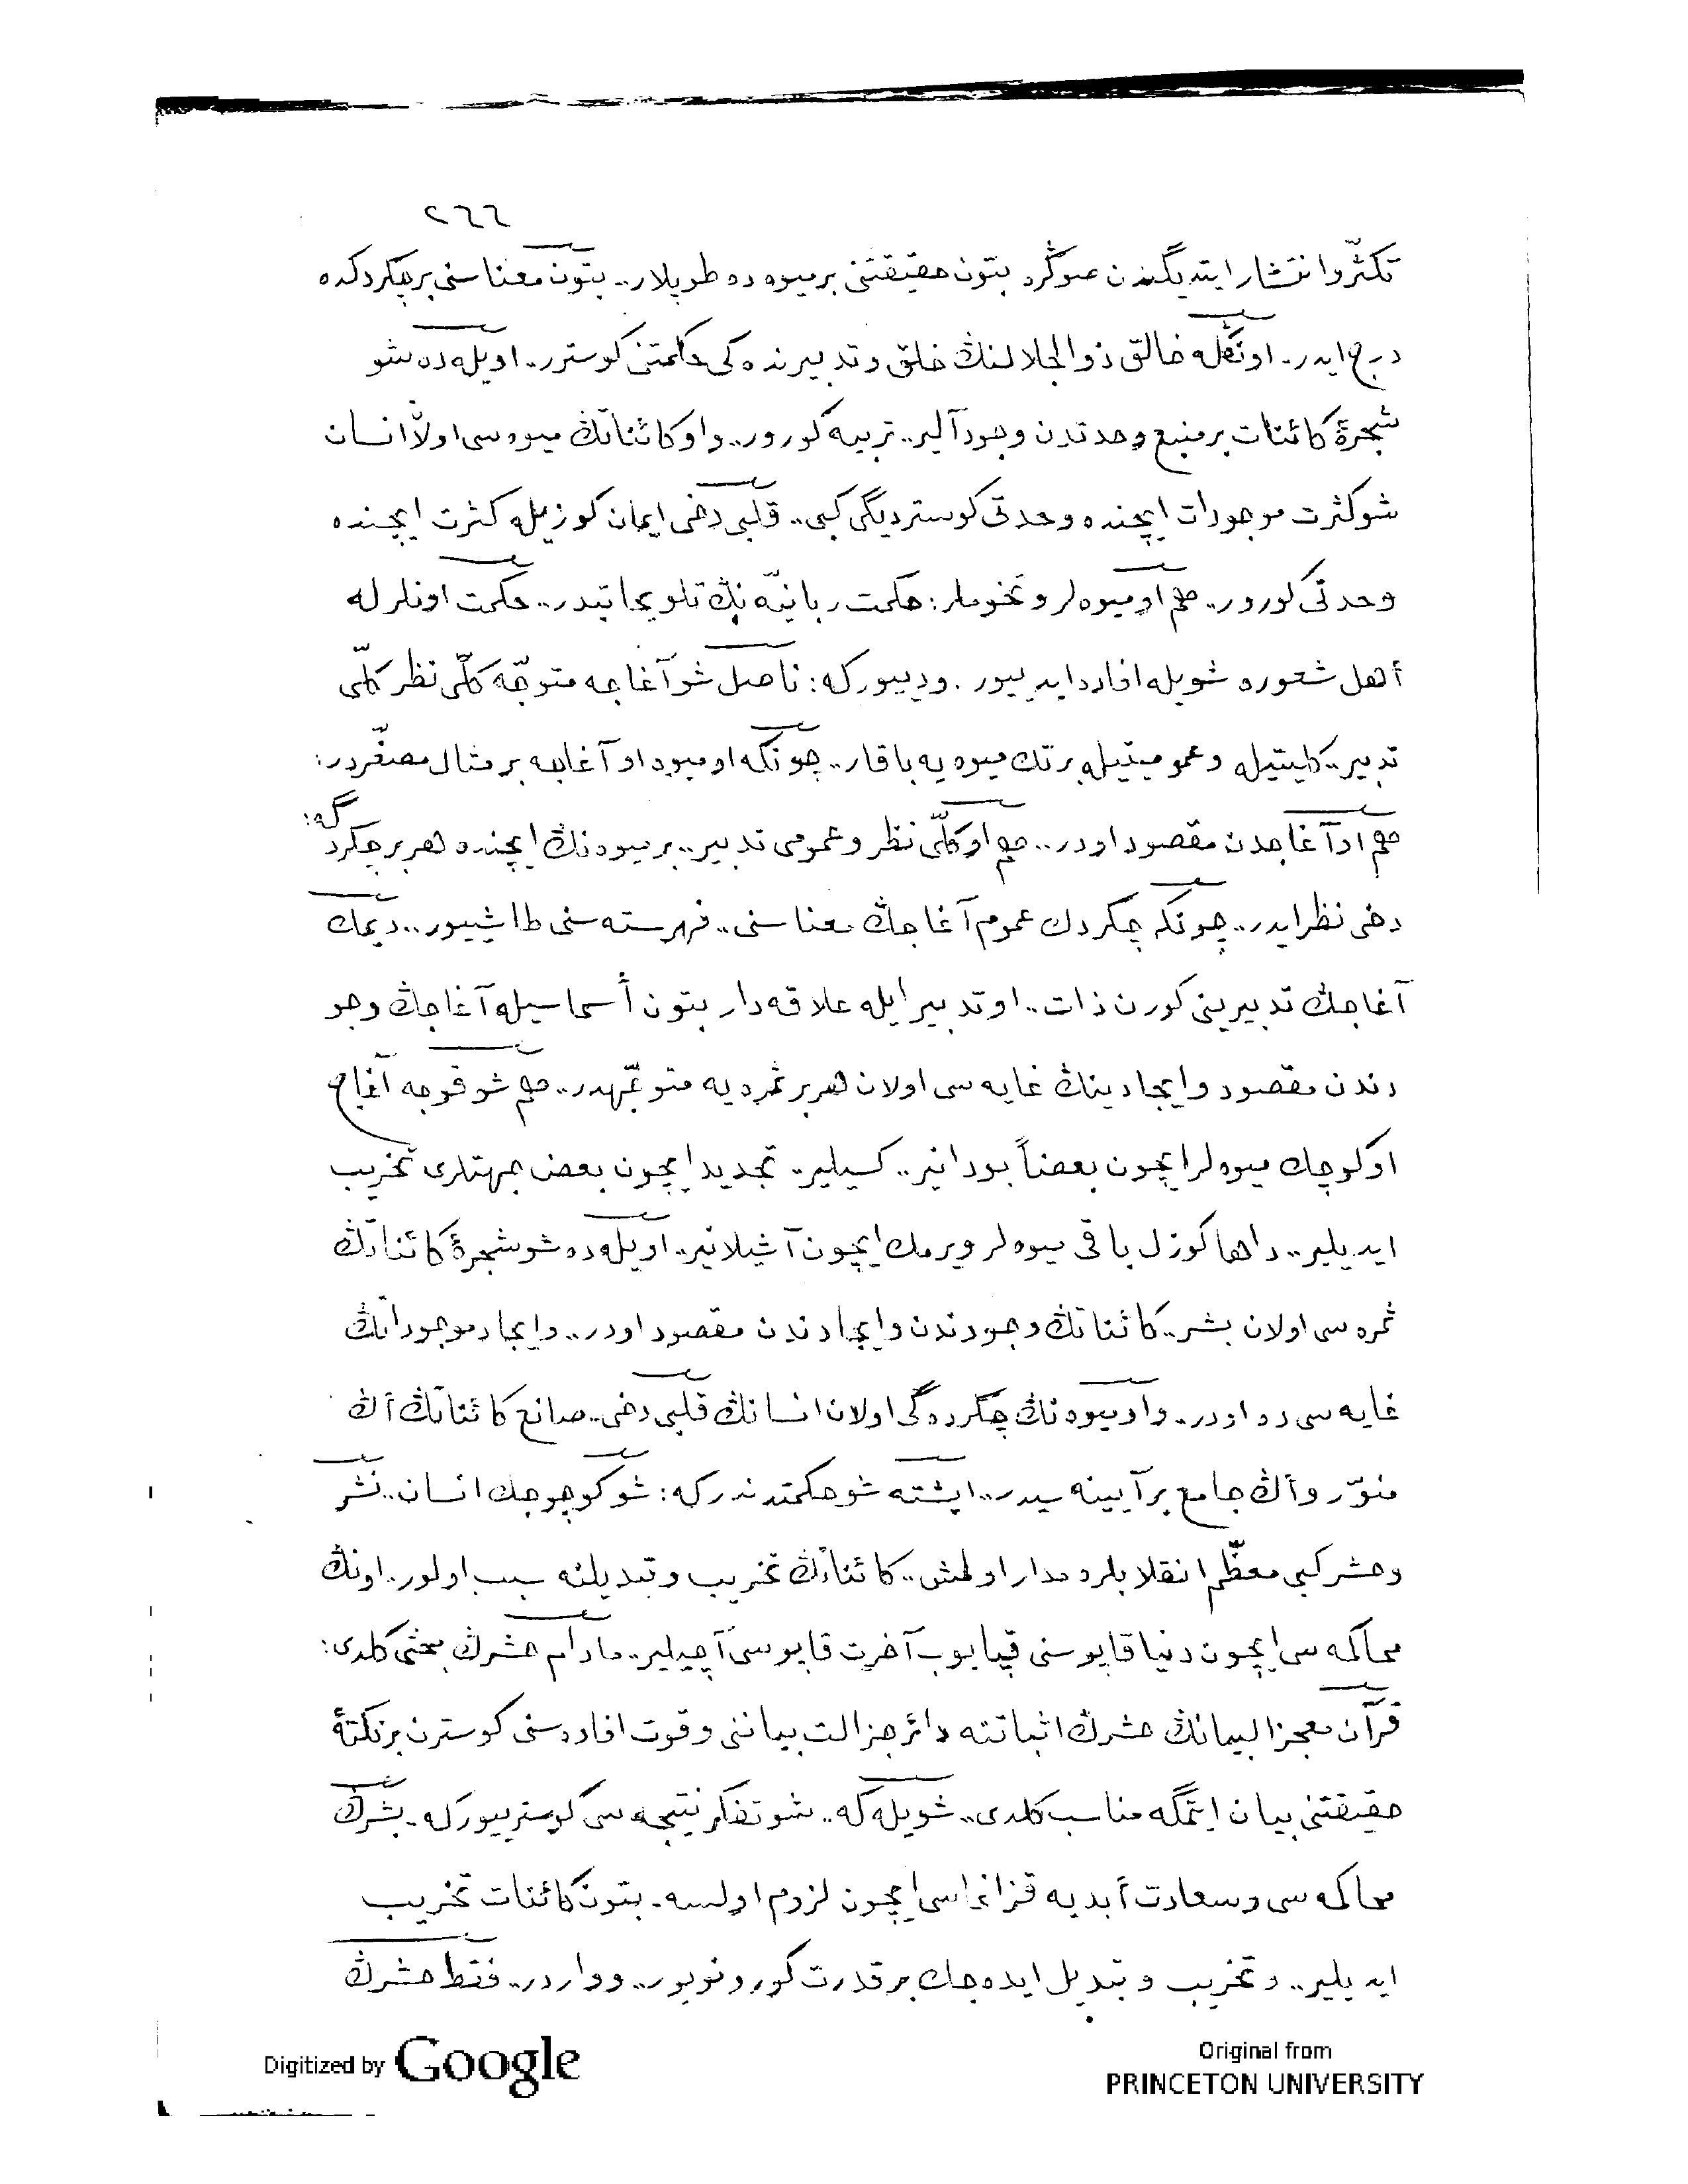 ٢٦٦
تكثّر وانتشار ايتديگندن صوڭره بتون حقيقتنى بر ميوه ده طوپلار.. بتون معناسنى بر چكردكده
درج ايدر. اونڭله خالق ذو الجلالنڭ خلق وتدبيرنده كى حكمتنى كوسترر. اويله ده شو
شجرۀ كائنات بر منبع وحدتدن وجود آلير.. تربيه كورور.. واو كائناتڭ ميوه سى اولان انسان
شو كثرت موجودات ايچنده وحدتى كوسترديگى كبى.. قلبى دخى ايمان كوزيله كثرت ايچنده
وحدتى كورور.. هم او ميوه لر وتخوملر: حكمت ربانيّه نڭ تلويحاتيدر.. حكمت اونلرله
أهل شعوره شويله افاده ايدييور. وديیوركه: ناصل شو آغاجه متوجّه كلّى نظر كلّى
تدبير.. كليتيله وعموميتيله بر تك ميوه يه باقار.. چونكه او ميوه او آغاجه بر مثال مصغّردر:
هم او آغاجدن مقصود اودر.. هم او كلّى نظر وعمومى تدبير.. بر ميوه نڭ ايچنده هر بر چكردگه:
دخى نظر ايدر.. چونكه چكردك عموم آغاجڭ معناسنى.. فهرسته سنى طاشييور.. ديمك
آغاجڭ تدبيرينى كورن ذات.. او تدبير ايله علاقه دار بتون أسماسيله آغاجڭ وجو
دندن مقصود وايجادينڭ غايه سى اولان هر بر ثمره يه متوجّهدر.. هم شو قوجه آغاج
او كوچك ميوه لر ايچون بعضاً بودانير.. كسيلير. تجديد ايچون بعض جهتلرى تخريب
ايديلير.. داها كوزل باقى ميوه لر ويرمك ايچون آشيلانير. اويله ده شو شجرۀ كائناتڭ
ثمره سى اولان بشر.. كائناتڭ وجودندن وايجادندن مقصود اودر.. وايجاد موجوداتڭ
غايه سى ده اودر. واو ميوه نڭ چكرده گى اولان انسانڭ قلبى دخى.. صانع كائناتڭ أڭ
منوّر وأڭ جامع بر آيينه سيدر.. ايشته شو حكمتدندر كه: شو كوچوجك انسان.. نشر
وحشر كبى معظّم انقلابلره مدار اولمش.. كائناتڭ تخريب وتبديلنه سبب اولور. اونڭ
محاكمه سى ايچون دنيا قاپوسنى قپايوب آخرت قاپوسى آچيلير.. مادام حشرڭ بحثى كلدى:
قرآن معجز البيانڭ حشرڭ اثباتنه دائر جزالت بياننى وقوت افاده سنى كوسترن بر نكتۀ
حقيقتنى بيان ايتمگه مناسب كلدى.. شويله كه.. شو تفكر نتيجه سى كوسترييور كه. بشرڭ
محاكمه سى وسعادت أبديه قزانماسى ايچون لزوم اولسه. بتون كائنات تخريب
ايديلير.. وتخريب وتبديل ايده جك بر قدرت كورونويور.. وواردر.. فقط حشرڭ
Digitized by Google
Original from
PRINCETON UNIVERSITY